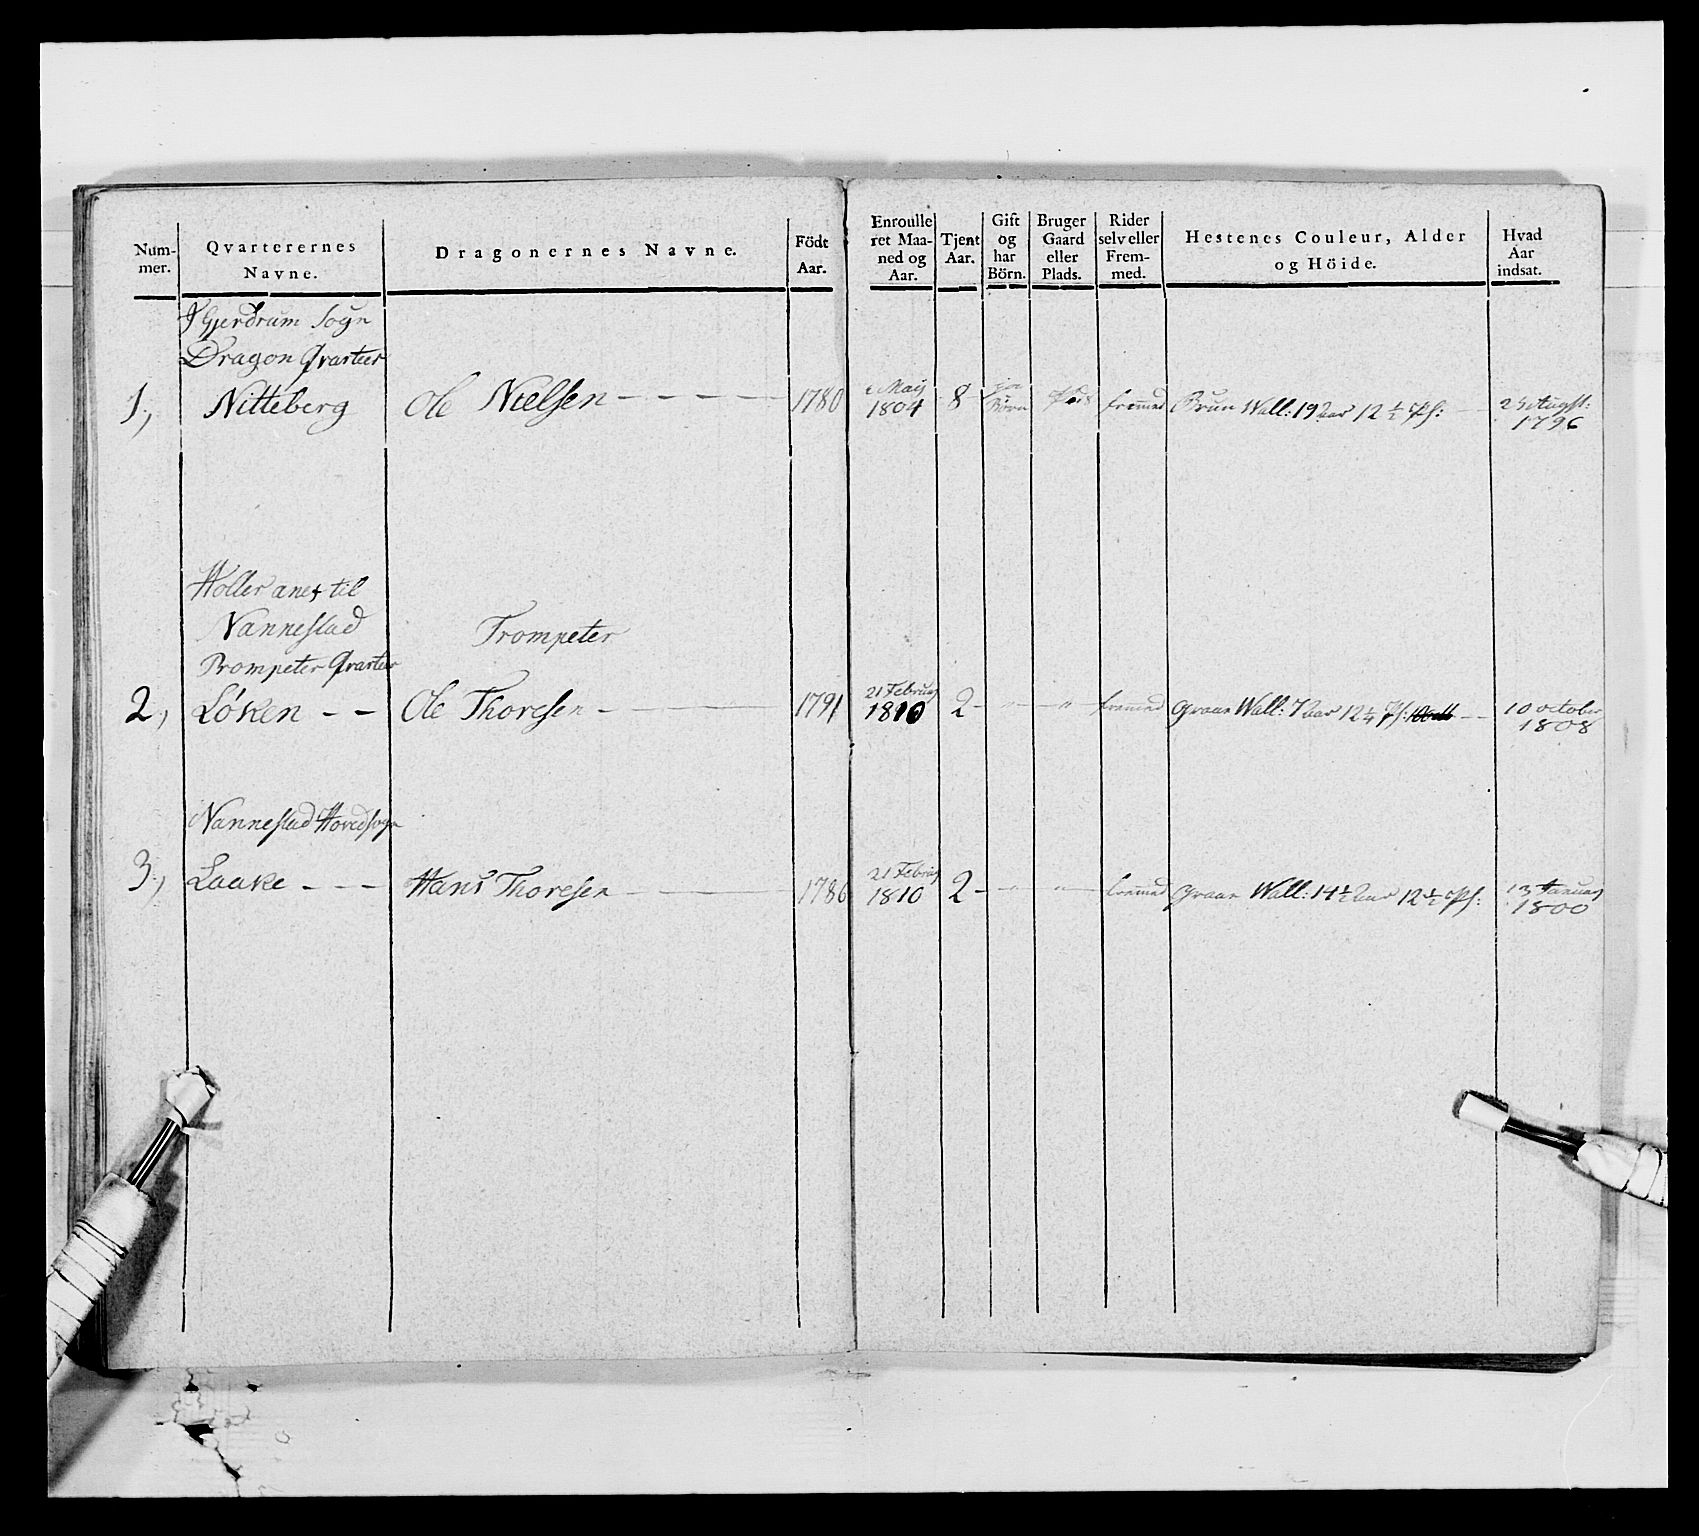 Num-
mer.
Qvarterernes
Navne.
Dragonernes Navne.
Födt
Aar.
Enroulle
ret Maa-
ned og
Aar.
Tjent
Aar.
Gift
og
har
Börn.
Bruger
Gaard
eller
Plads.
Rider
selv eller
Frem-
med.
Hestenes Couleur, Alder
og Höide.
Hvad
Aar
indsat.
I Gjerdrum Sogn
Dragon Qvarteer
1, Nitteberg Ole Nielsen - - - - - 1780 Maij 1804 8 Börn fremmed Brun Wall: 19 Aar 12 1/2 Pf: Augst: 1796
Holler anex til
Nannestad
Trompeter Qvarteer Trompeter
2, Löken - - Ole Thoresen - 1791 21 Februarj 1810 2 - " " fremmed Graae Wall: 7 Aar 12 1/4 Pf: 10 october 1808
Nannestad Hovedsogn
3, Laake - - - Hans Thoresen - 1786 21 Februarj 1810 2 - " " fremmed Graae Wall: 14 1/2 Aar 12 1/2 Pf: 13 Januarj 1800